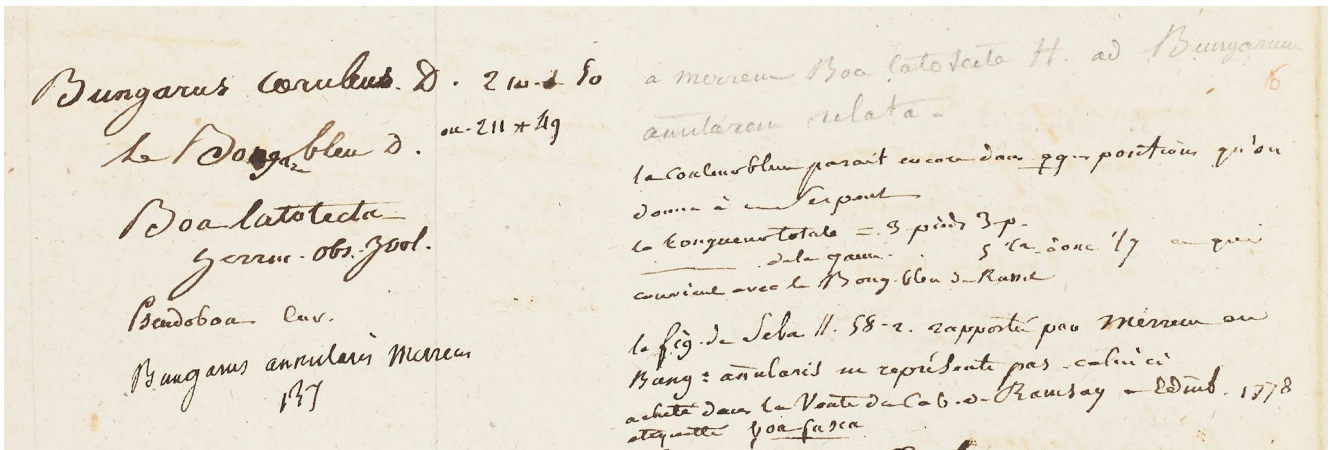 Bungarus cœruleus. D. 210 + 50
ou 211 + 49
le Bongare bleu D.
Boa latotecta
herm. obs. Zool.
Pseudoboa Cuv.
Bungarus annularis Merrem
a merrem Boa latotecta H. ad Bungarum
annularem relata -
16
la couleur bleue parait encore dans qqes positions qu'on
donne à ce serpent
la longueur totale = 3 pieds 3 p.
de la queue . 5 donc 1/7 en quoi
convient avec le Bong. bleu de Russel
la fig. de Seba II. 58-2. rapportée par Merrem au
Bung: annularis ne représente pas celui ci
acheté dans la Vente du Cab. de Ramsay a Edimb. 1778
etiquetté boa fasca